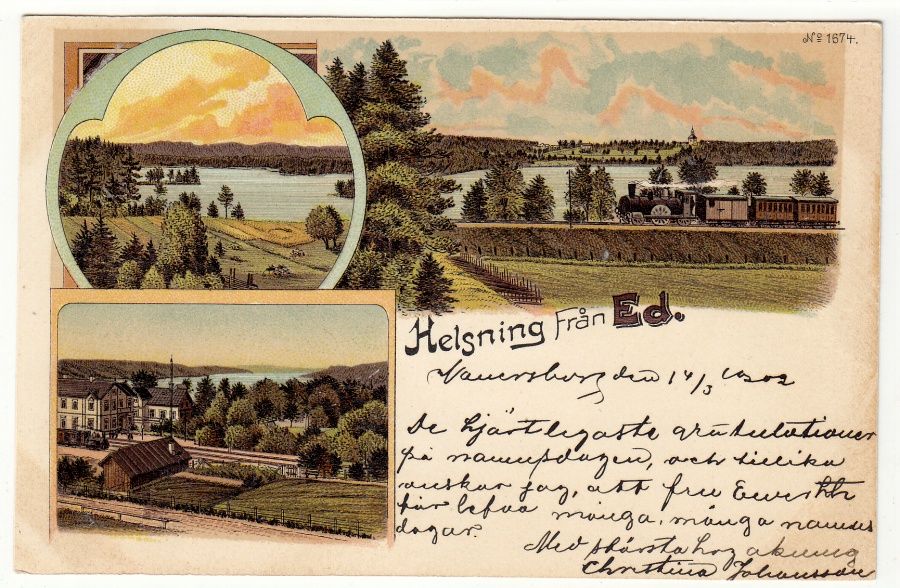 No 1674.
Helsning Från Ed.
Wenersborg den 14/3 1902
De hjärtligaste gratulationer
på namnsdagen, och tillika
önskar jag, att fru
får lefva många, många namns
dagar.
Med största hog aktning
Christina Johansson